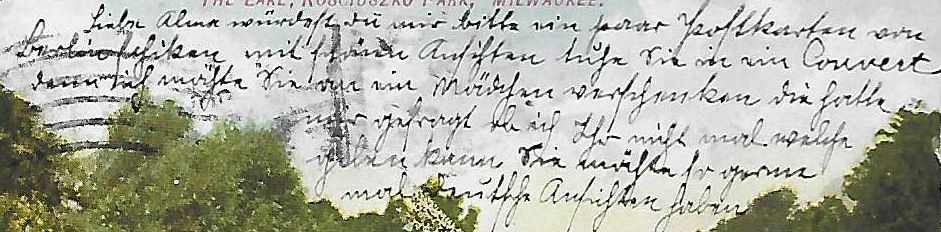 THE LAKE, KOSCIUSZKO PARK, MILWAUKEE.
Liebe Alma würdest du mir bitte ein paar Postkarten von
Berlin schiken mit schönen Ansichten tuhe Sie in ein Couvert
denn ich möchte Sie an ein Mädchen verschenken die hatte
mir gefragt ob ich Ihr nicht mal welche
geben kann Sie möchte so gerne
mal deutsche Ansichten haben